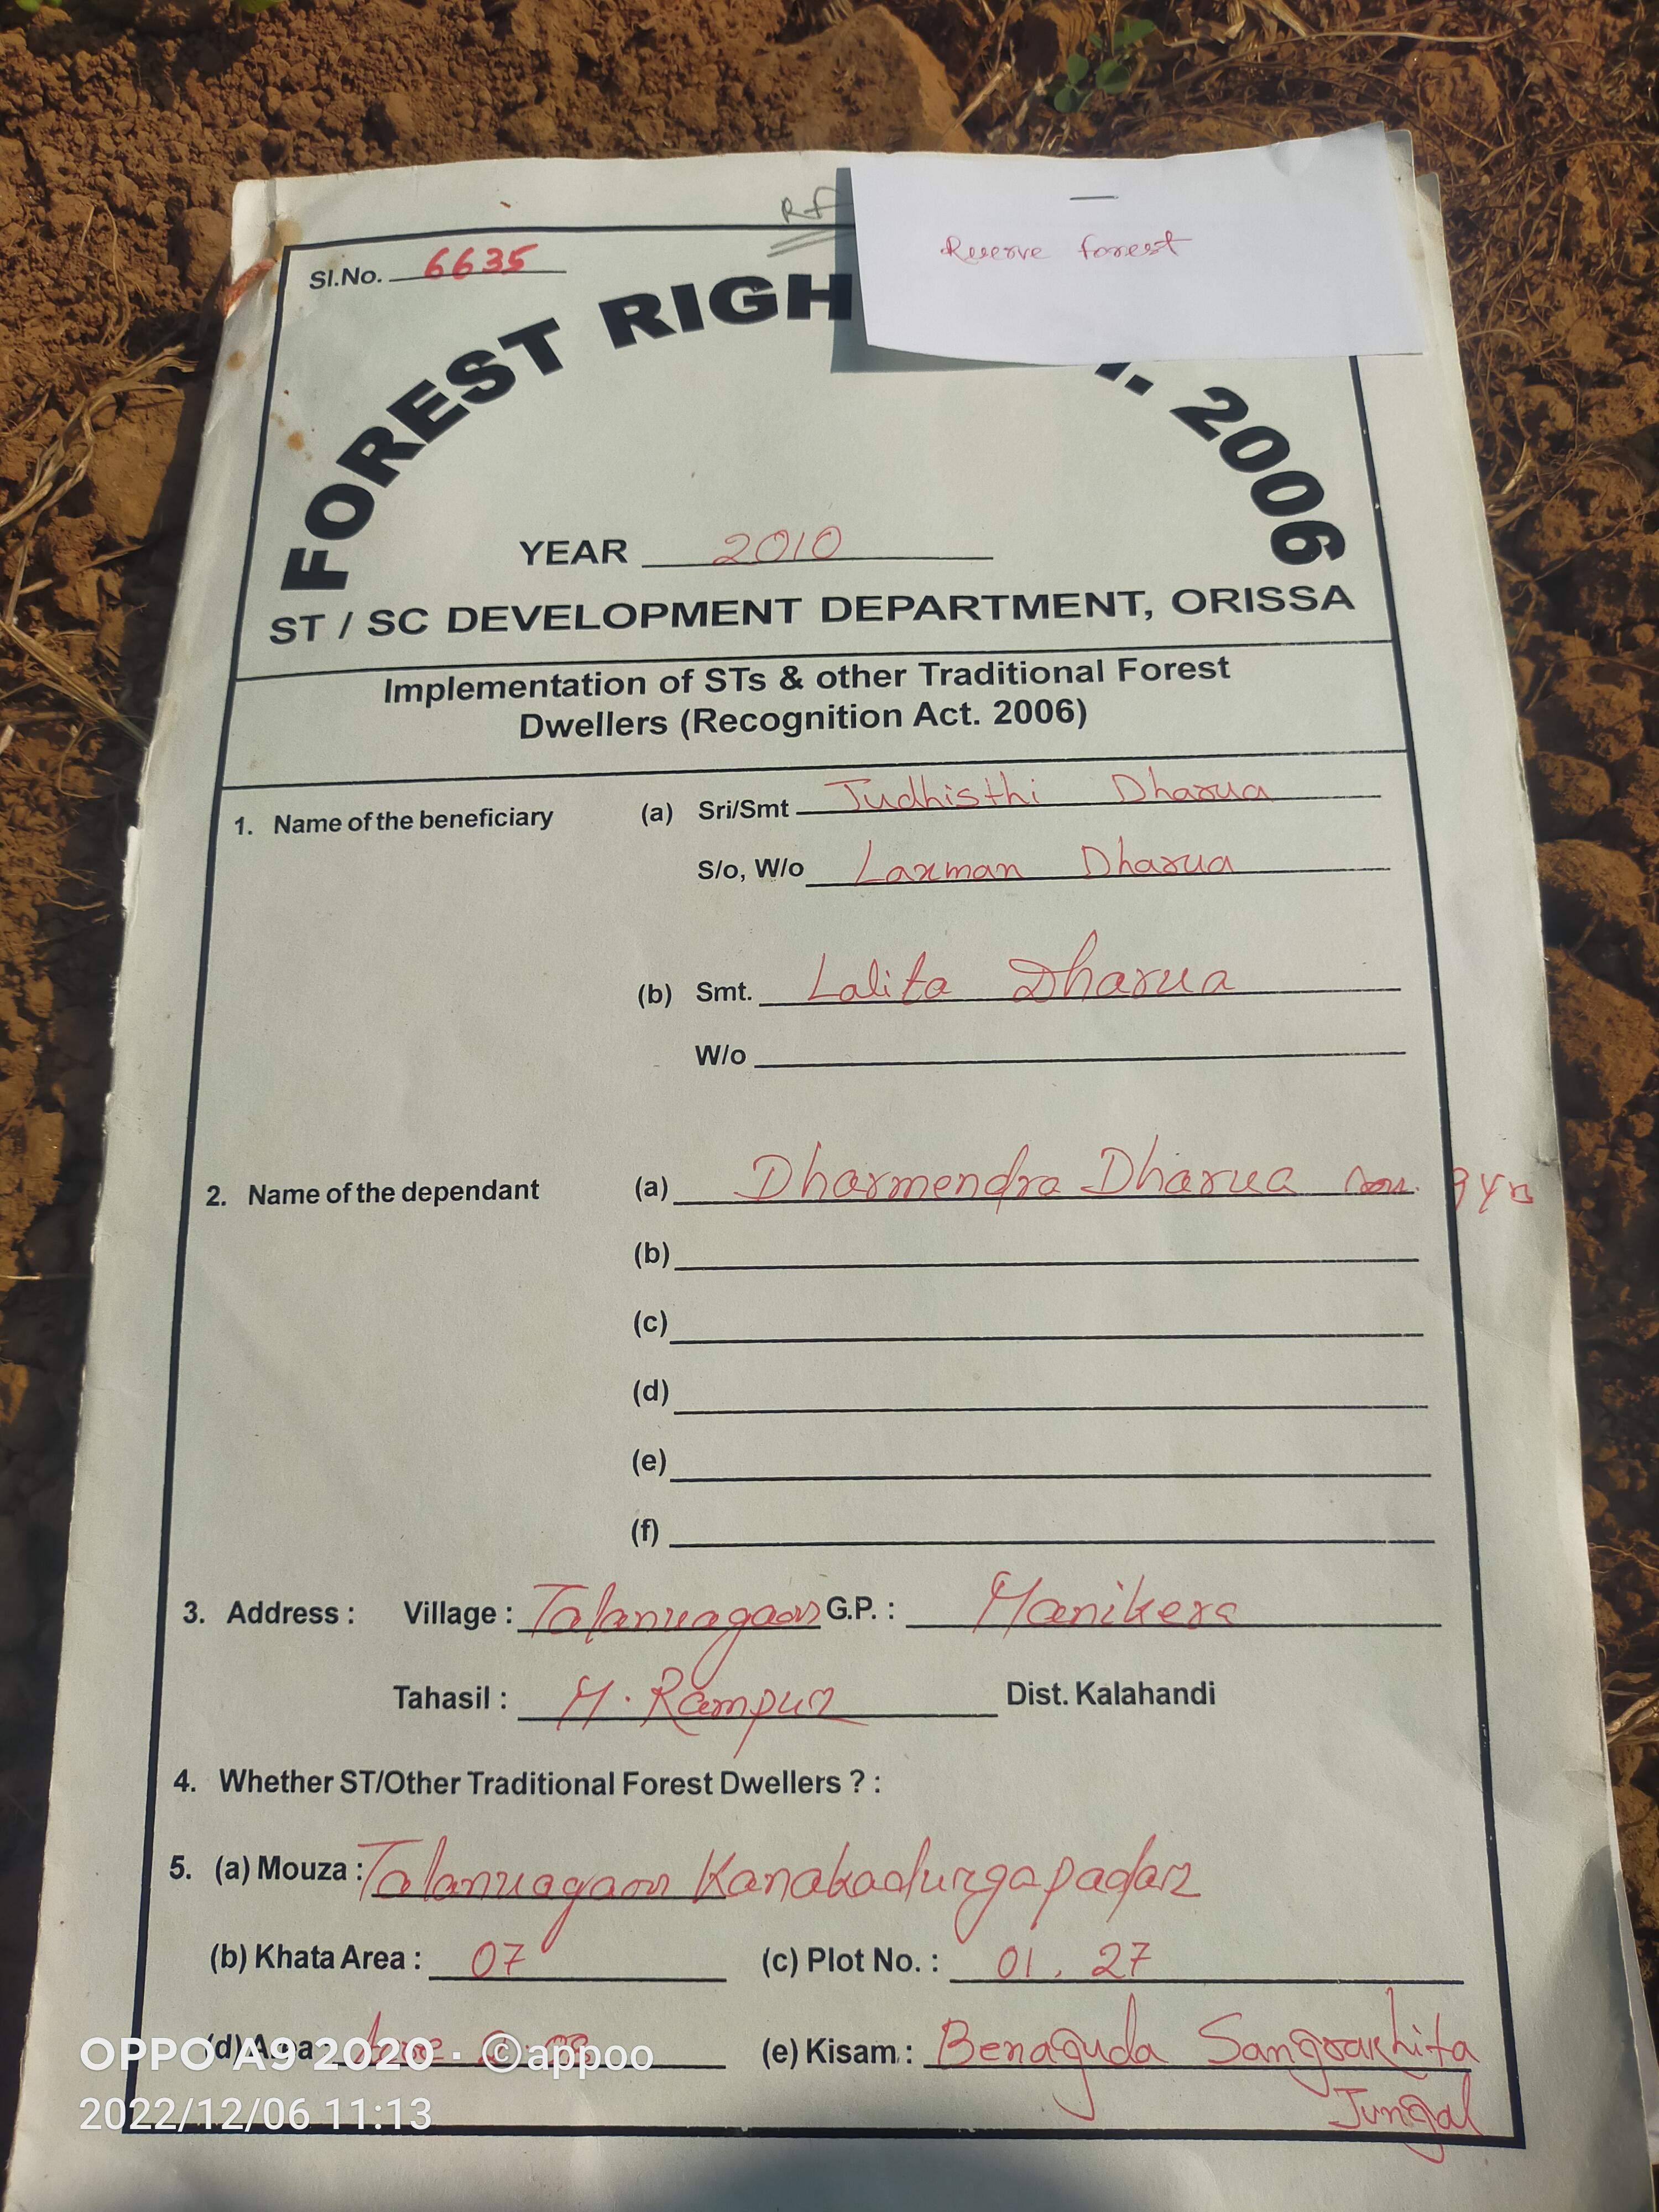 RF
Reserve forest
Sl.No. 6635
FOREST RIGH 2006
YEAR 2010
ST / SC DEVELOPMENT DEPARTMENT, ORISSA
Implementation of STs & other Traditional Forest
Dwellers (Recognition Act. 2006)
1. Name of the beneficiary (a) Sri/Smt Judhisthi Dharua
S/o, W/o Laxman Dharua
(b) Smt. Lalita Dharua
W/o
2. Name of the dependant (a) Dharmendra Dharua
(b)
(c)
(d)
(e)
(f)
3. Address : Village : Talanuagaon G.P. : Manikera
Tahasil : M. Rampur Dist. Kalahandi
4. Whether ST/Other Traditional Forest Dwellers ? :
5. (a) Mouza : Talanuagaon Kanakadurgapadar
(b) Khata Area : 07 (c) Plot No. : 01, 27
(d) Area (e) Kisam : Benaguda Sangrakhita
Jungal
OPPO A9 2020 · ©appoo
2022/12/06 11:13